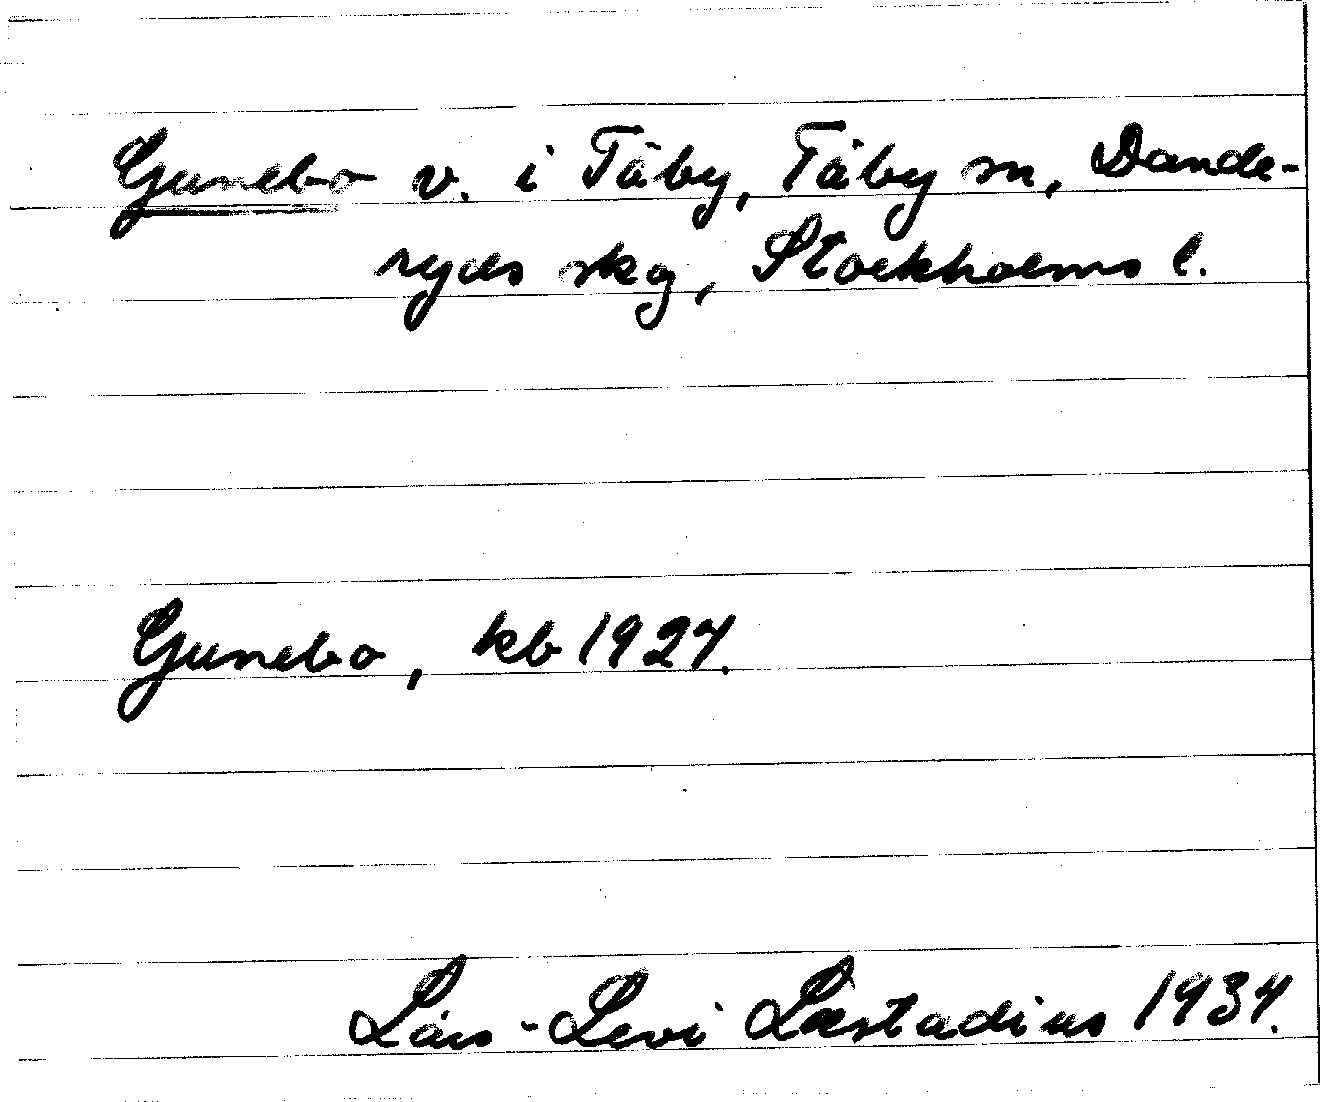 Gunebo v. i Täby, Täby sn, Dande-
ryds skg, Stockholms l.
Gunebo, kb 1927.
Lars-Levi Læstadius 1937.